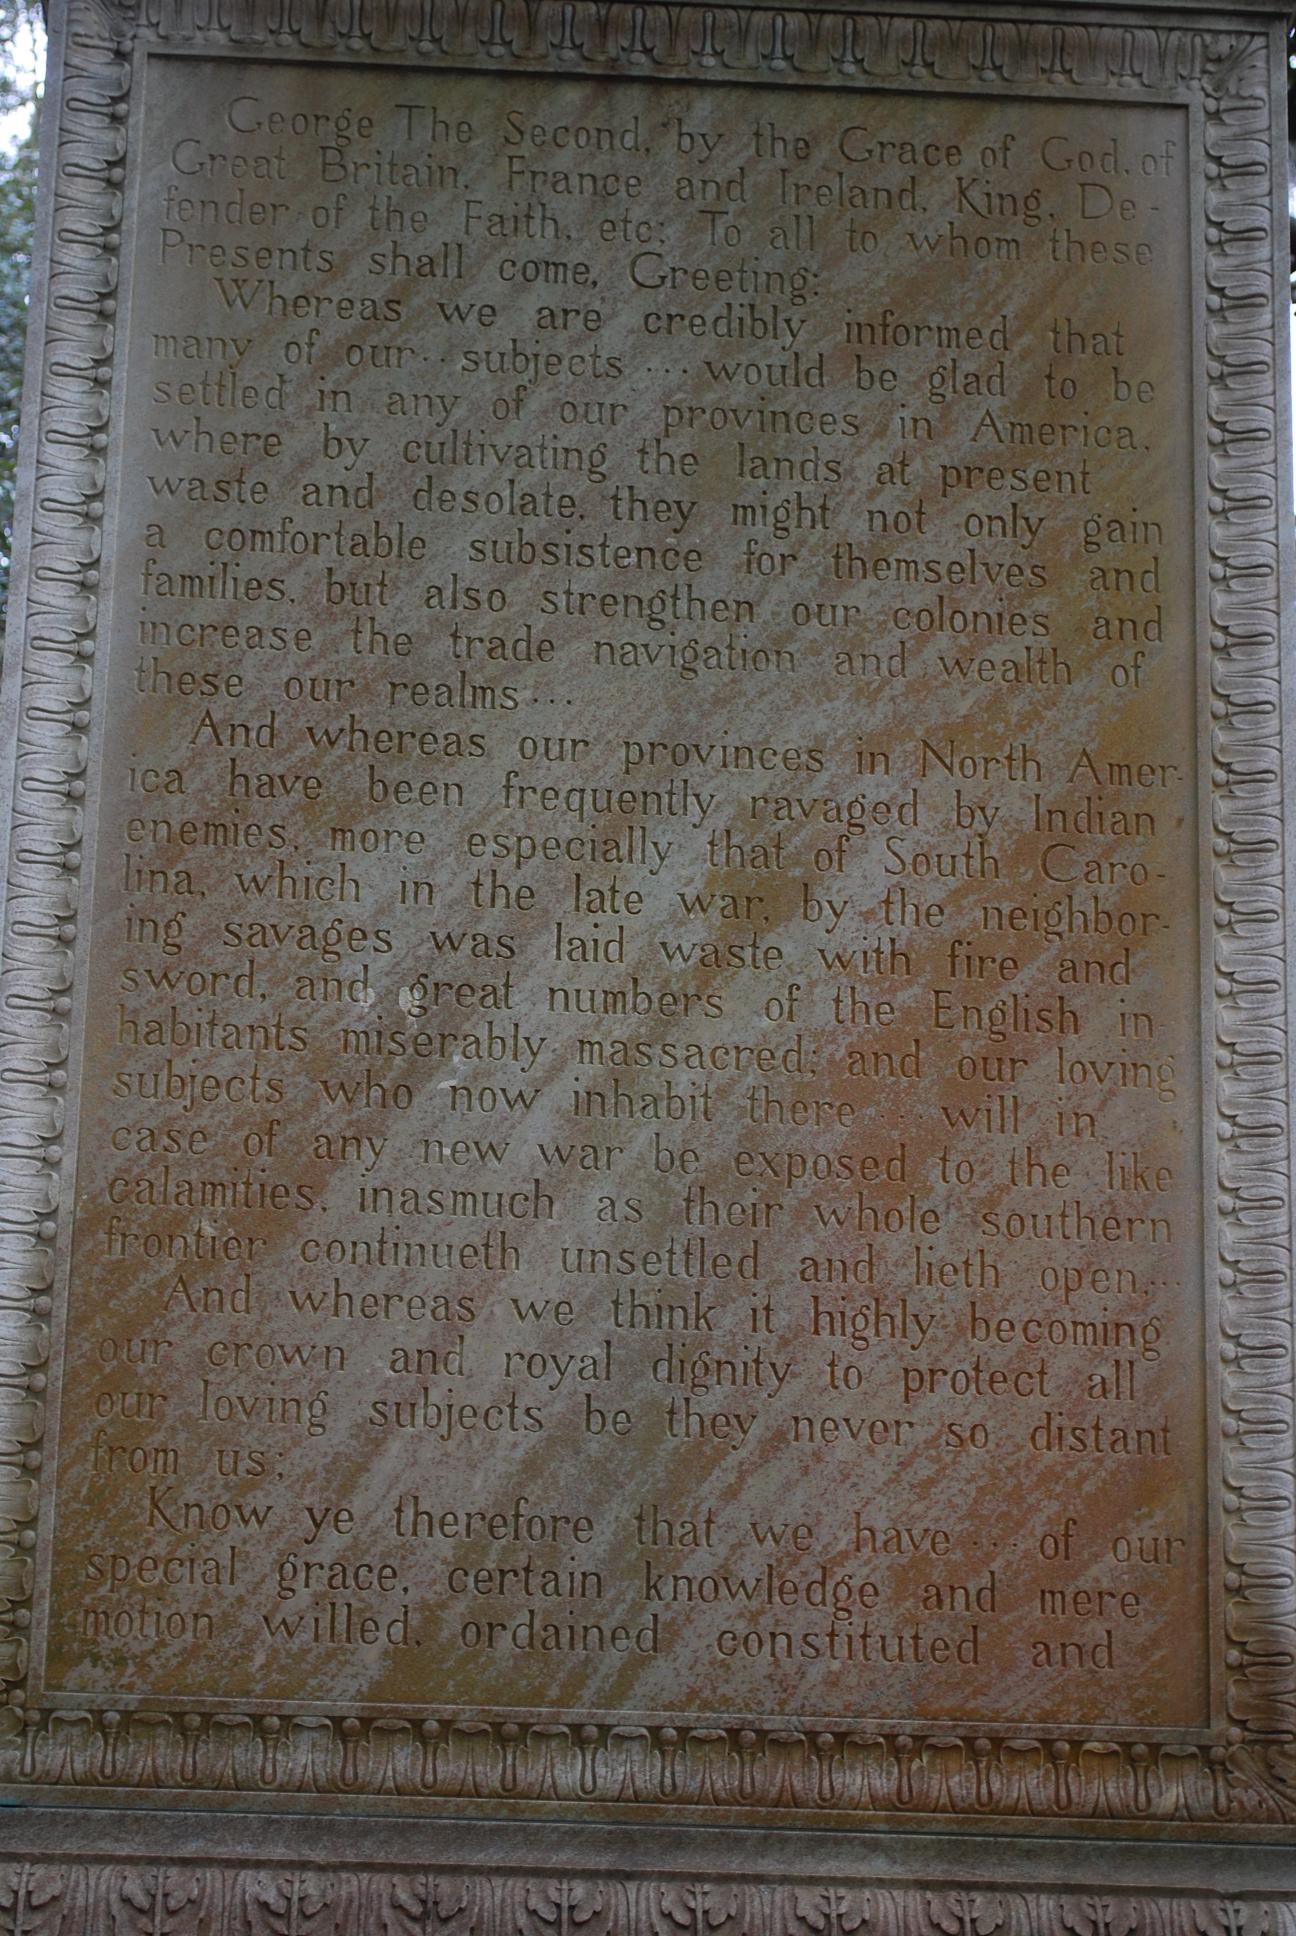 George The Second, by the Grace of God, of
Great Britain, France and Ireland, King, De-
fender of the Faith, etc; To all to whom these
Presents shall come, Greeting:
Whereas we are credibly informed that
many of our ·· subjects ··· would be glad to be
settled in any of our provinces in America,
where by cultivating the lands at present
waste and desolate, they might not only gain
a comfortable subsistence for themselves and
families, but also strengthen our colonies and
increase the trade navigation and wealth of
these our realms ···
And whereas our provinces in North Amer-
ica have been frequently ravaged by Indian
enemies, more especially that of South Caro-
lina, which in the late war, by the neighbor-
ing savages was laid waste with fire and
sword, and great numbers of the English in-
habitants miserably massacred; and our loving
subjects who now inhabit there ··· will in
case of any new war be exposed to the like
calamities, inasmuch as their whole southern
frontier continueth unsettled and lieth open, ···
And whereas we think it highly becoming
our crown and royal dignity to protect all
our loving subjects be they never so distant
from us;
Know ye therefore that we have ··· of our
special grace, certain knowledge and mere
motion willed, ordained constituted and